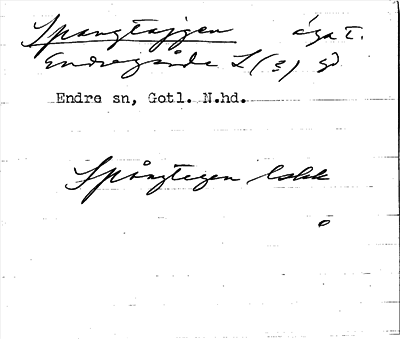 Spangtajgen äga I.
Endregårda L (s) gd
Endre sn, Gotl. N.hd.
Spångtegen lokk